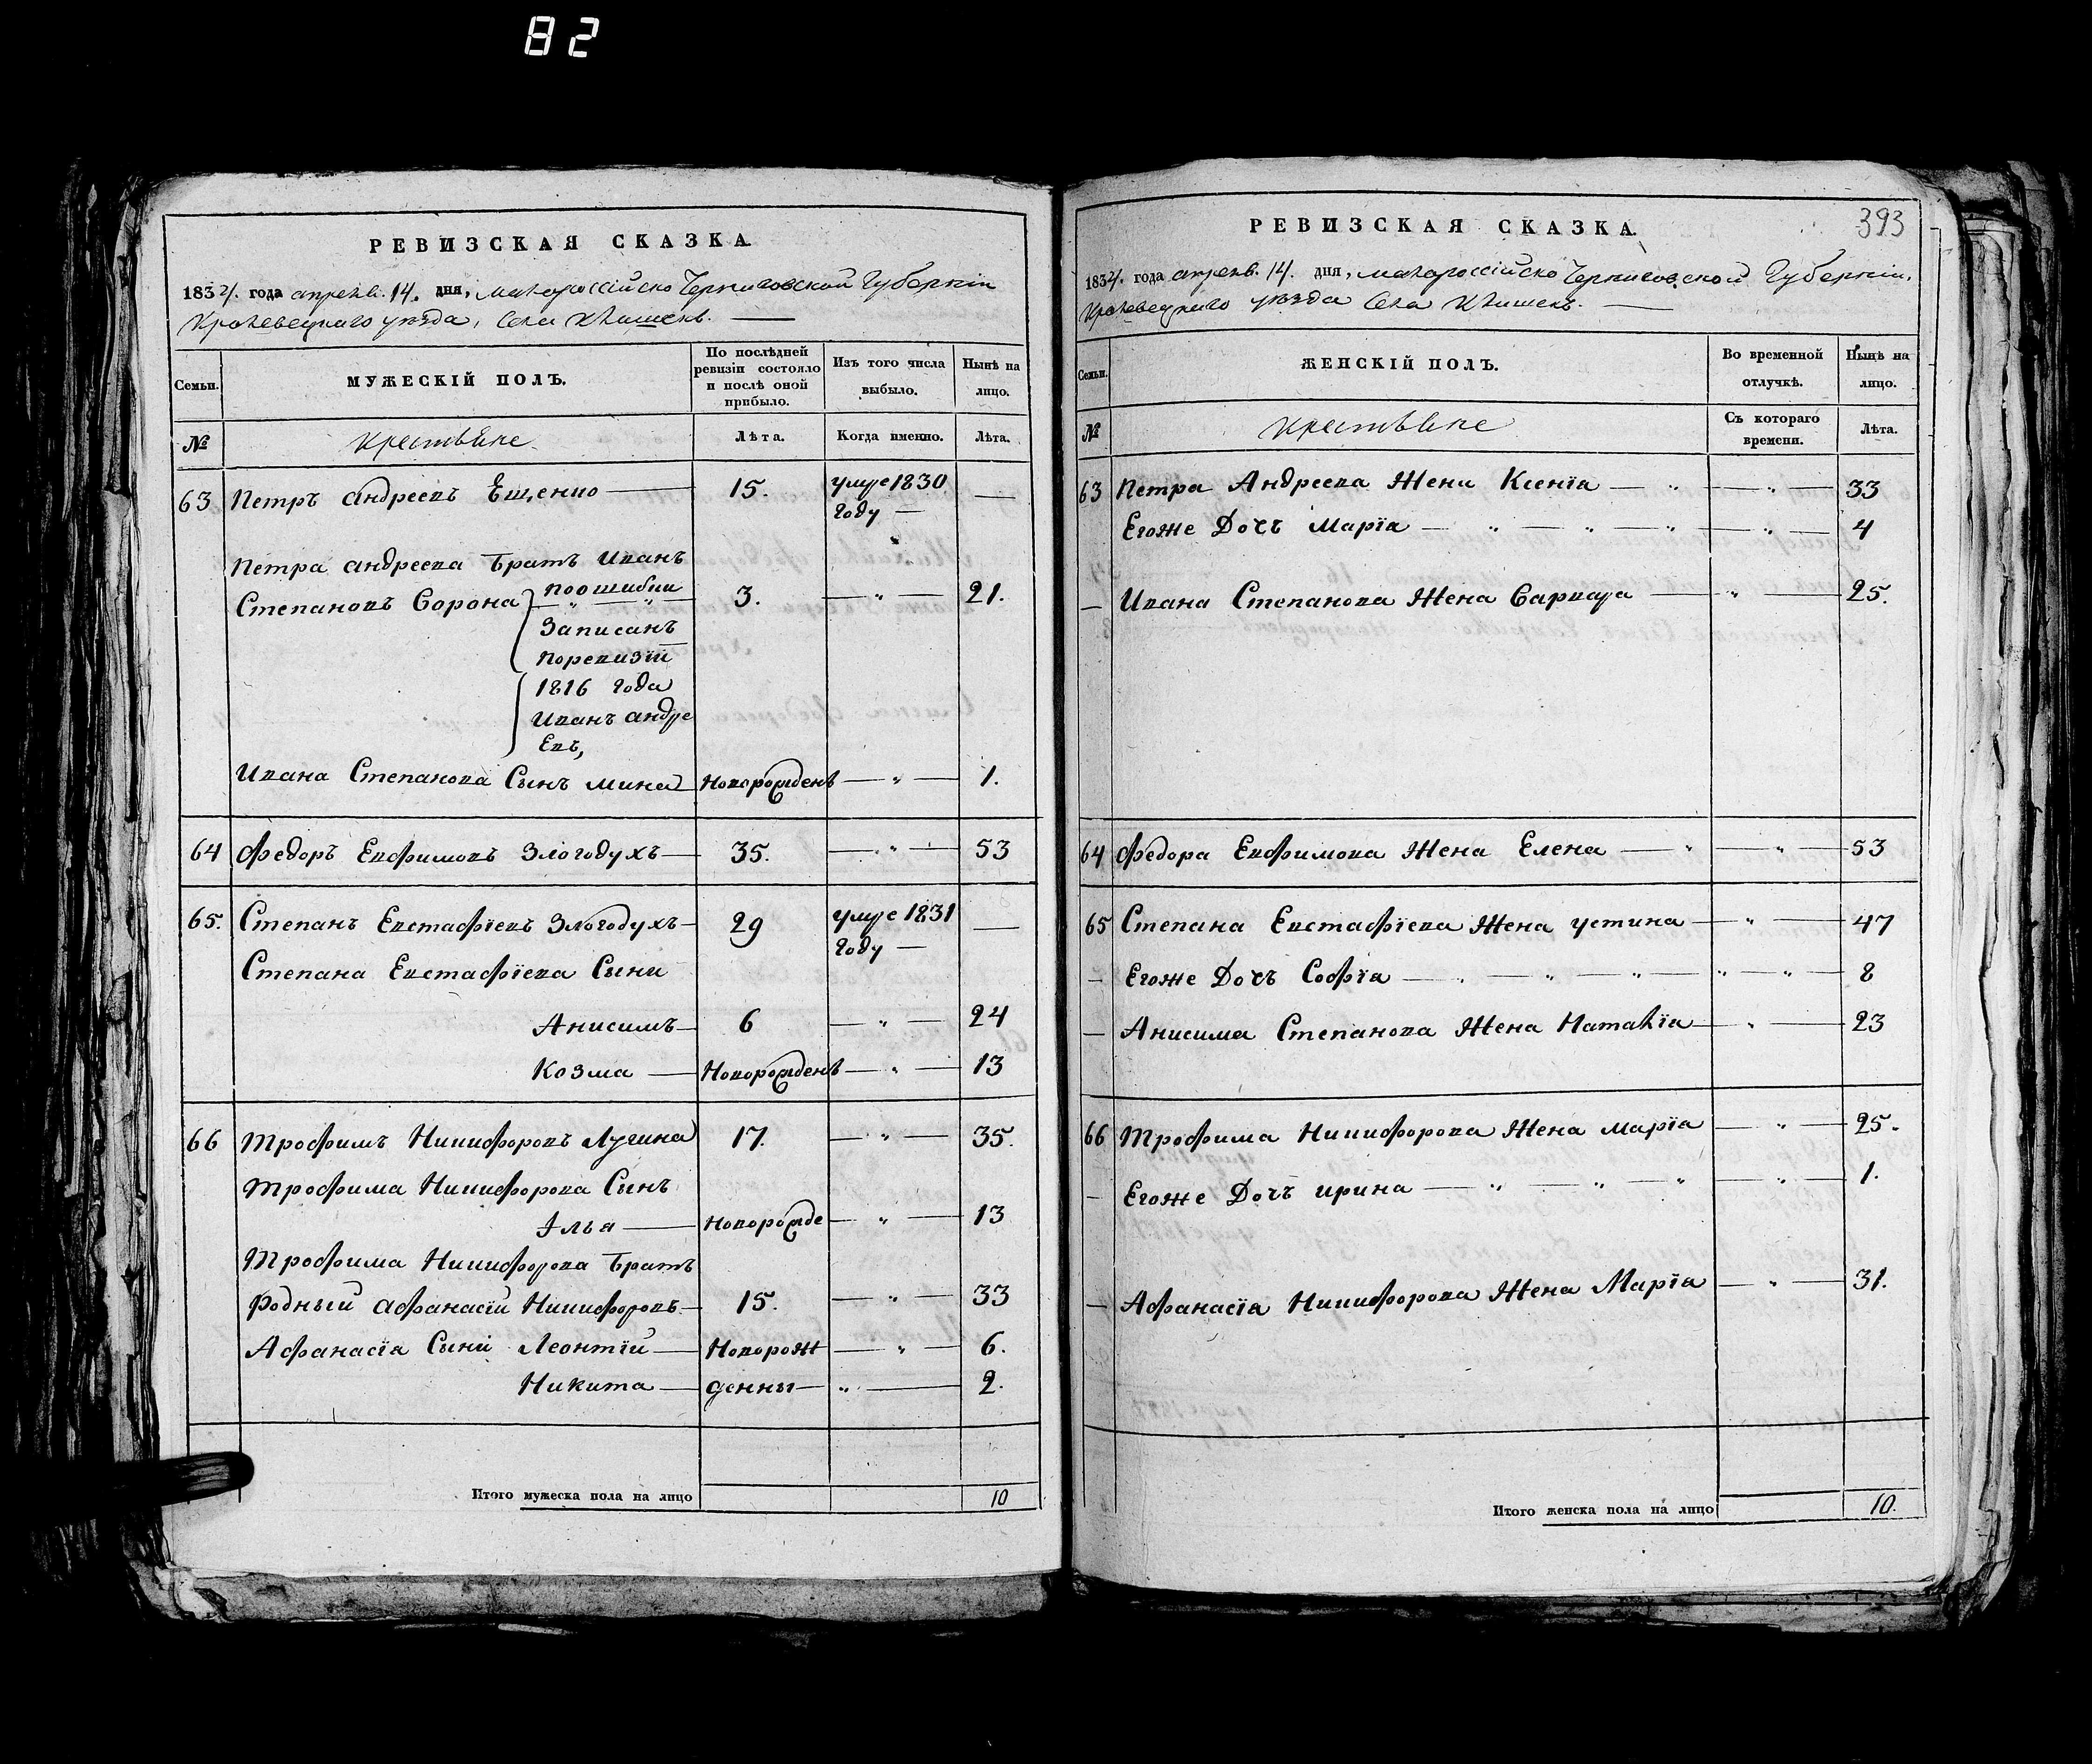 82
РЕВИЗСКАЯ СКАЗКА.
1834. года апреля. 14. дня, малороссійско Черниговской Губерніи
Кролевецкаго уѣзда, Села Клишекъ.
Семьи.
МУЖЕСКІЙ ПОЛЪ.
По послѣдней ревизіи состояло и послѣ оной прибыло.
Изъ того числа выбыло.
Нынѣ на лицо.
№
Крестьяне
Лѣта.
Когда именно.
Лѣта.
63 Петръ Андреевъ Ещенко 15. умре 1830 году
Петра Андреева Братъ Иванъ
Степановъ Сорока поошибки 3. " 21.
Записанъ
Поревизіи
1816 года
Иванъ Андре
евъ,
Ивана Степанова Сынъ Мина Новорожденъ " 1.
64 Федоръ Евфимовъ Злогодухъ 35. " 53
65. Степанъ Евстафіевъ Злогодухъ 29 умре 1831 году
Степана Евстафіева Сыни
Анисимъ 6 " 24
Козма Новорожденъ " 13
66 Трофимъ Никифоровъ Лугина 17. " 35.
Трофима Никифорова Сынъ
Илья Новорожде " 13
Трофима Никифорова Братъ
Родный Афанасій Никифоровъ 15. " 33
Афанасія Сыни Леонтій Новорож " 6.
Никита денны " 2.
Итого мужеска пола на лицо 10
РЕВИЗСКАЯ СКАЗКА.
393
1834. года апреля. 14. дня, малороссійско Черниговской Губерніи,
Кролевецкаго уѣзда Села Клишекъ.
Семьи.
ЖЕНСКІЙ ПОЛЪ.
Во временной отлучкѣ.
Нынѣ на лицо.
№
Крестьяне
Съ котораго времени.
Лѣта.
63 Петра Андреева Жена Ксенія " " 33
Егоже Дочъ Марія " " " " 4
Ивана Степанова Жена Варвара " 25.
64 Федора Евфимова Жена Елена " " 53
65 Степана Евстафіева Жена Устина " 47
Егоже Дочъ Софія " " " " " 8
Анисима Степанова Жена Наталія " 23
66 Трофима Никифорова Жена Марія " 25.
Егоже Дочъ Ирина " " " " 1.
Афанасія Никифорова Жена Марія " 31.
Итого женска пола на лицо 10.